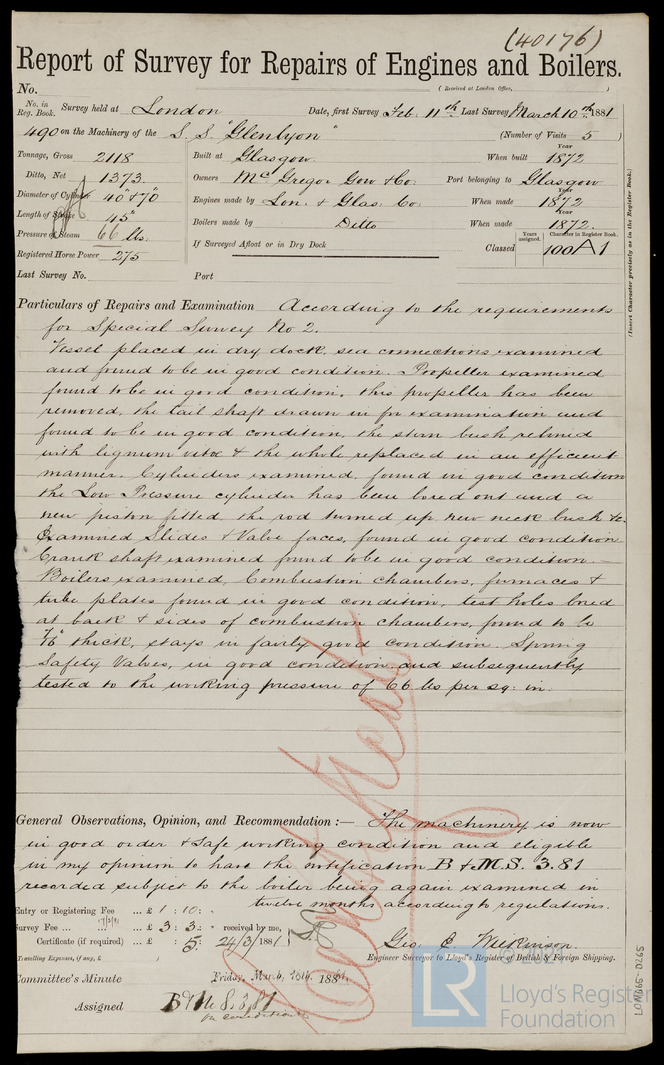 (40176)
Report of Survey for Repairs of Engines and Boilers.
No. (Received at London Office, )
No. in Reg. Book. Survey held at London Date, first Survey Feb. 11th Last Survey March 10th 1881
490 on the Machinery of the S.S. "Glenlyon" (Number of Visits 5 )
Tonnage, Gross 2118 Built at Glasgow When built Year 1872
Ditto, Net 1373 Owners McGregor Gow & Co. Port belonging to Glasgow
Diameter of Cylinder 40" & 70" Engines made by Lon. & Glas. Co. When made Year 1872
Length of Stroke 45" Boilers made by Ditto When made Year 1872.
Pressure of Steam 66 lbs. If Surveyed Afloat or in Dry Dock Classed Years assigned. Character in Register Book. 100 A 1
Registered Horse Power 275
Last Survey No. Port
(Insert Character precisely as in the Register Book.)
Particulars of Repairs and Examination According to the requirements
for Special Survey No 2.
Vessel placed in dry dock, sea connections examined
and found to be in good condition. Propeller examined
found to be in good condition, this propeller has been
removed, the tail shaft drawn in for examination and
found to be in good condition, the stern bush relined
with lignum vitæ & the whole replaced in an efficient
manner. Cylinders examined, found in good condition
the Low Pressure cylinder has been bored out and a
new piston fitted, the rod turned up, new neck bush &c.
Examined Slides & Valve faces, found in good condition
Crank shaft examined found to be in good condition.—
Boilers examined, Combustion chambers, furnaces &
tube plates found in good condition, test holes bored
at back & sides of combustion chambers, found to be
7/16" thick, stays in fairly good condition. Spring
Safety Valves, in good condition and subsequently
tested to the working pressure of 66 lbs per sq: in.
General Observations, Opinion, and Recommendation :— The machinery is now
in good order & safe working condition and eligible
in my opinion to have the notification B & M.S. 3.81
recorded subject to the boiler being again examined in
twelve months according to regulations.
Entry or Registering Fee ... £ 1 : 10 : "
Survey Fee ... ... £ 3 : 3 : " received by me,
Certificate (if required) ... £ : 5 : 24/3/1881
Travelling Expenses, if any, £ )
Geo. C. Wilkinson.
Engineer Surveyor to Lloyd's Register of British & Foreign Shipping.
Committee's Minute Friday, March 18th, 1881.
Assigned B & MS 3.81
on condition
LR
Lloyd's Register
Foundation
LON665-0265